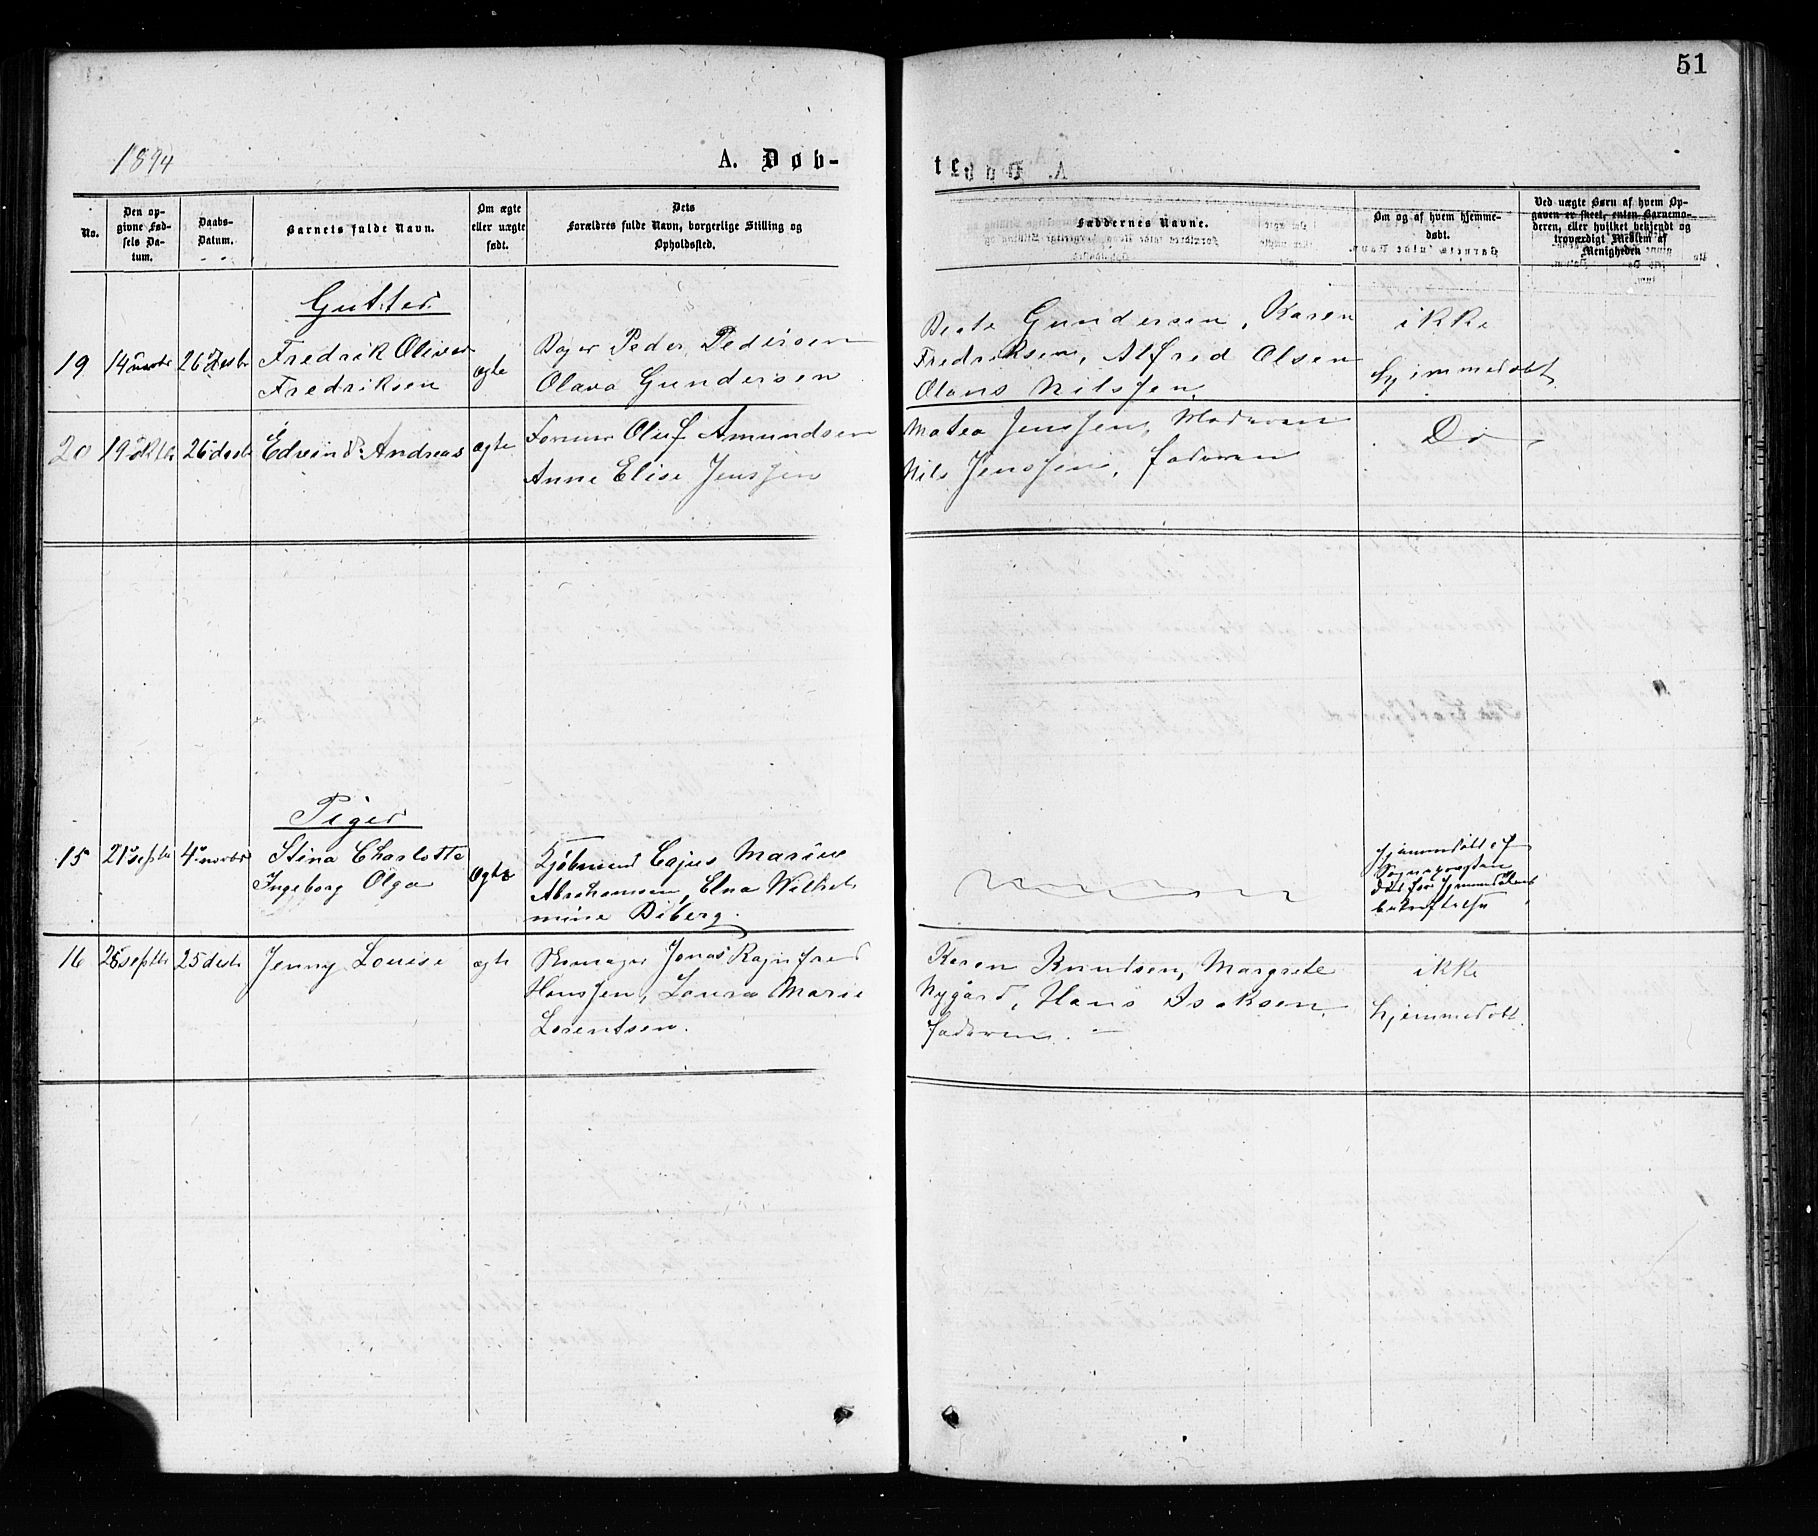 51
1894
A. Døb-
te.
No.
Den op-
givne Fød-
sels Da-
tum.
Daabs-
Datum.
Barnets fulde Navn.
Om ægte
eller uægte
født.
Dets
Forældres fulde Navn, borgerlige Stilling og
Opholdssted.
Faddernes Navne.
Om og af hvem hjemme-
døbt.
Ved uægte Børn af hvem Op-
gaven er skeet, enten Barnemo-
deren, eller hvilket bekjendt og
troværdigt Medlem af
Menigheden
Gutter
19
14 novbr
26 desbr
Fredrik Oliver
Fredriksen
ægte
Peder Pedersen
Olava Gundersen
Beate Gundersen, Karen
Fredriksen, Alfred Olsen
Olaus Nilssen.
ikke
hjemmedøbt
20
19 oktbr
26 desbr
Edvind Andreas
ægte
Former Oluf Amundsen
Anne Elise Jenssen
Matea Jenssen, Moderen
Nils Jenssen, faderen
Do
Piger
15
21 septbr
4 novbr
Stina Charlotte
Ingeborg Olga
ægte
Kjøbmand Cajus Marine
Abrahamsen, Elna Wilhel
mine Diberg.
hjemmedøbt af
Sognepresten
bekræftelse
16
28 septbr
25 desbr
Jenny Louise
ægte
Skomager Jonas Ragnfred
Hanssen, Laura Marie
Lorentsen.
Karen Knudsen, Margrete
Nygård, Hans Isaksen
faderen.
ikke
hjemmedøbt.